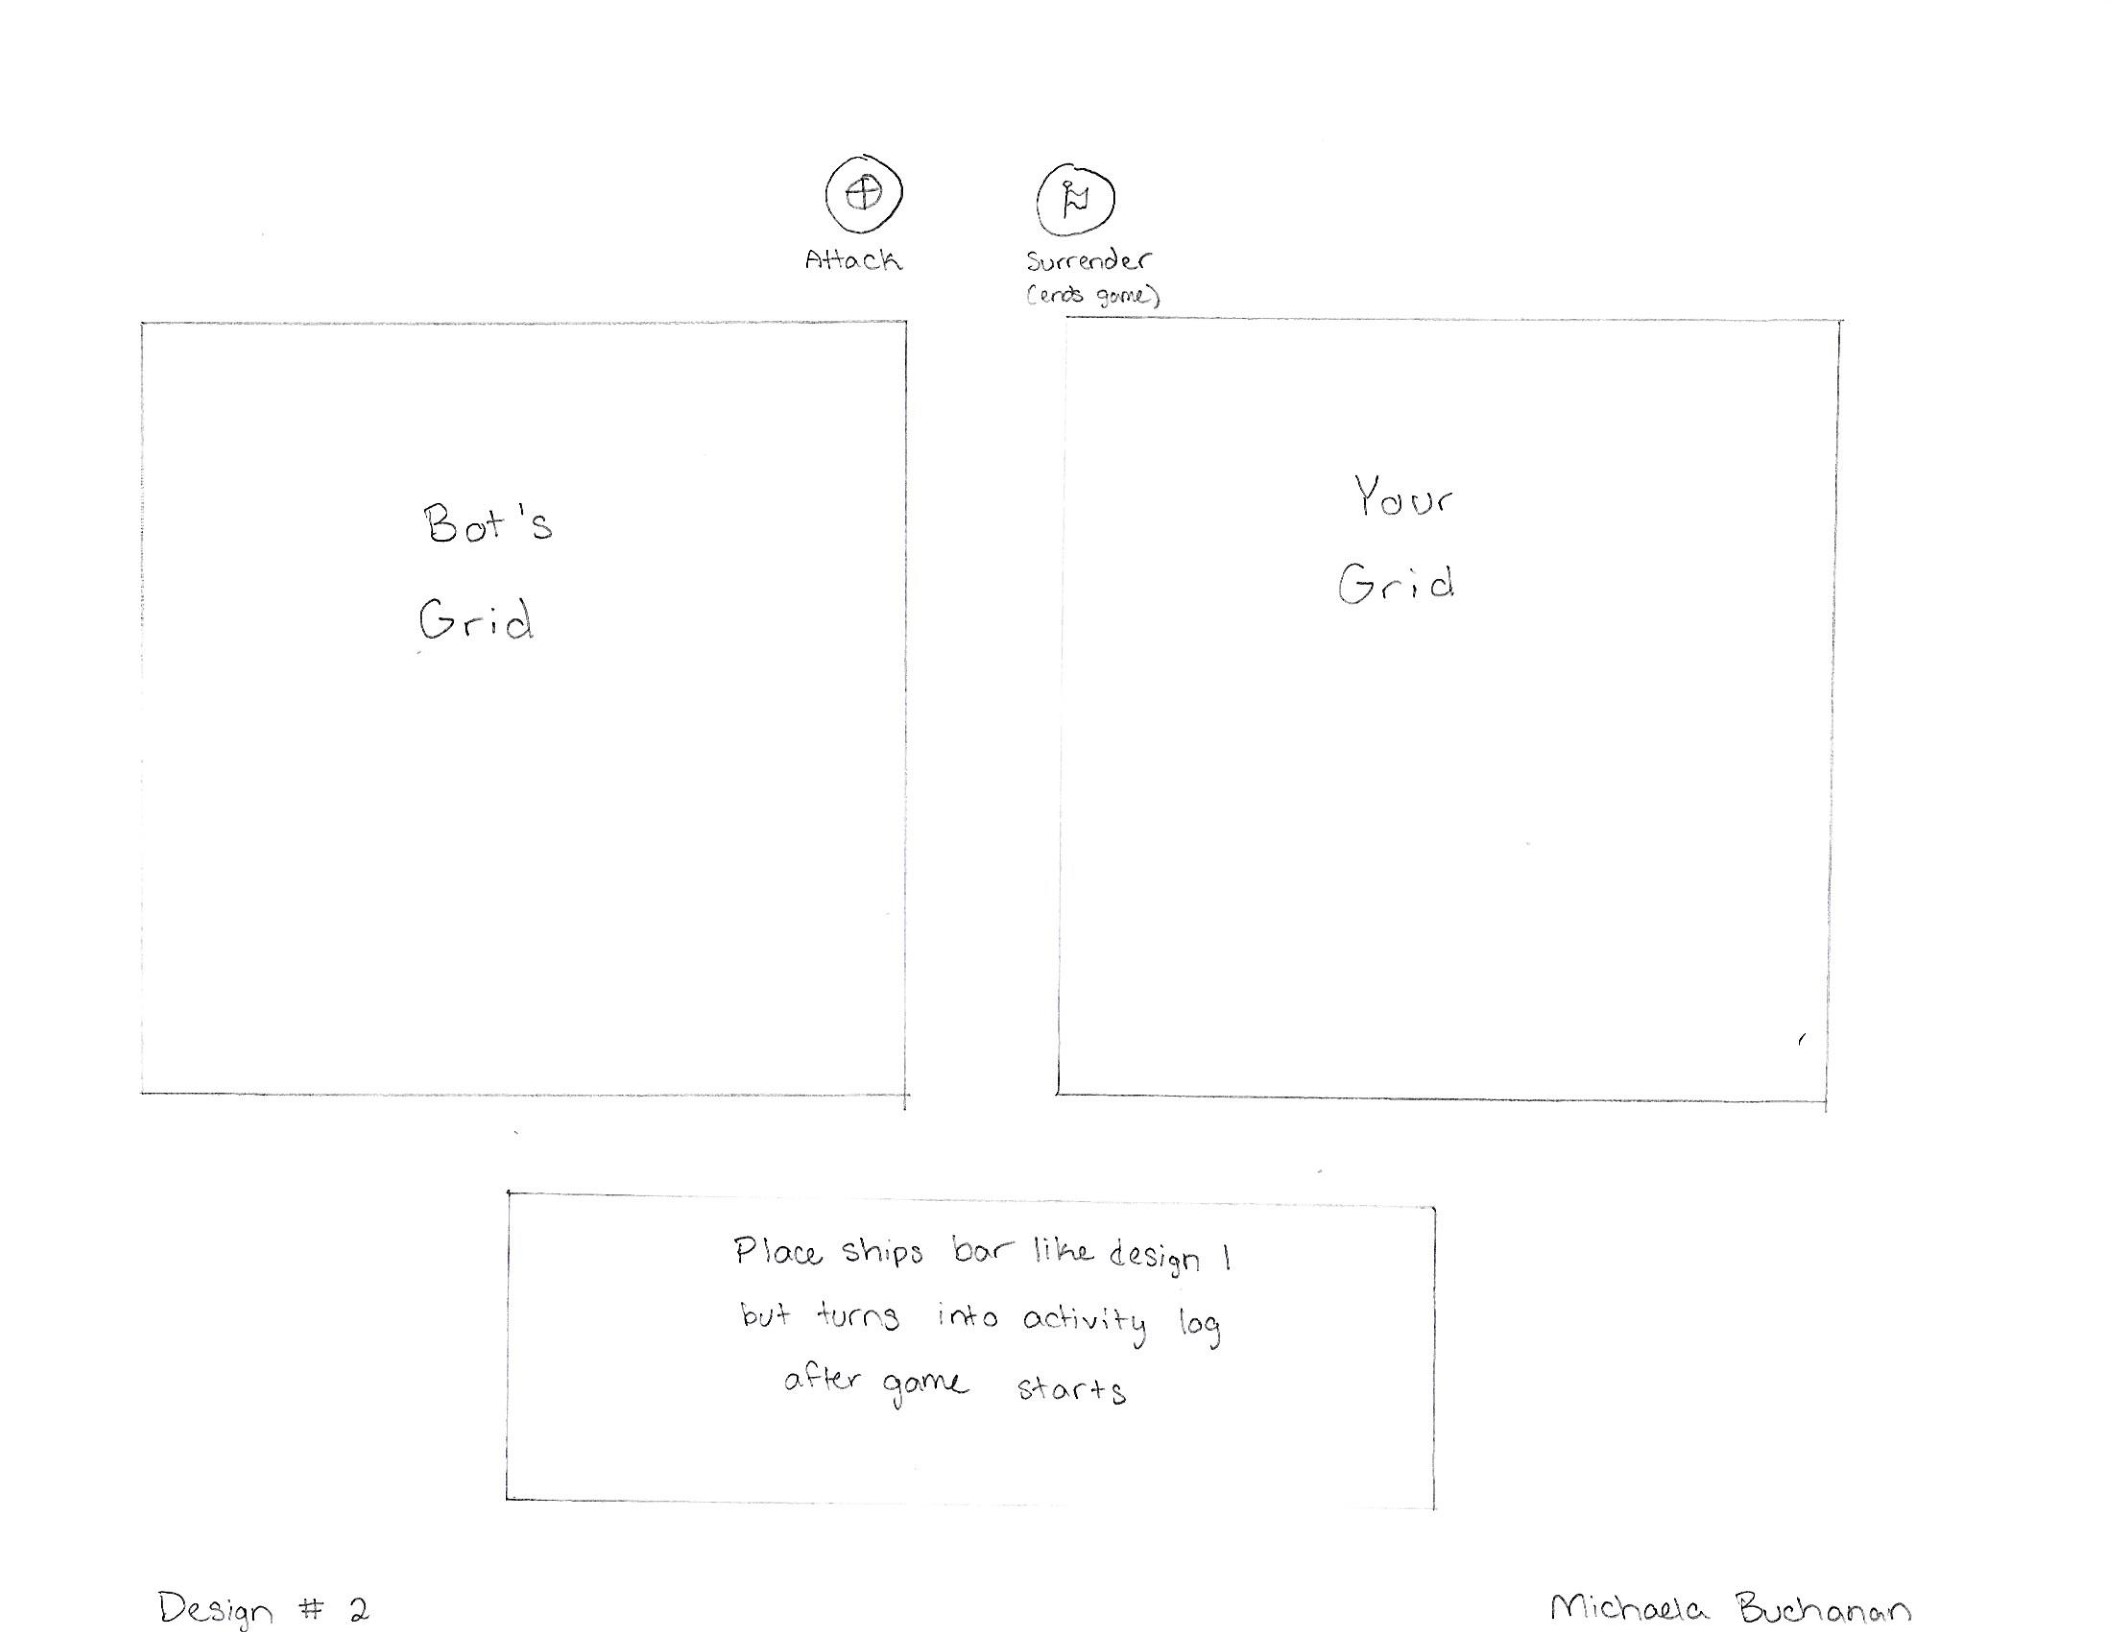 Attack
Surrender
(ends game)
Bot's
Grid
Your
Grid
Place ships bar like design 1
but turns into activity log
after game starts
Design # 2
Michaela Buchanan